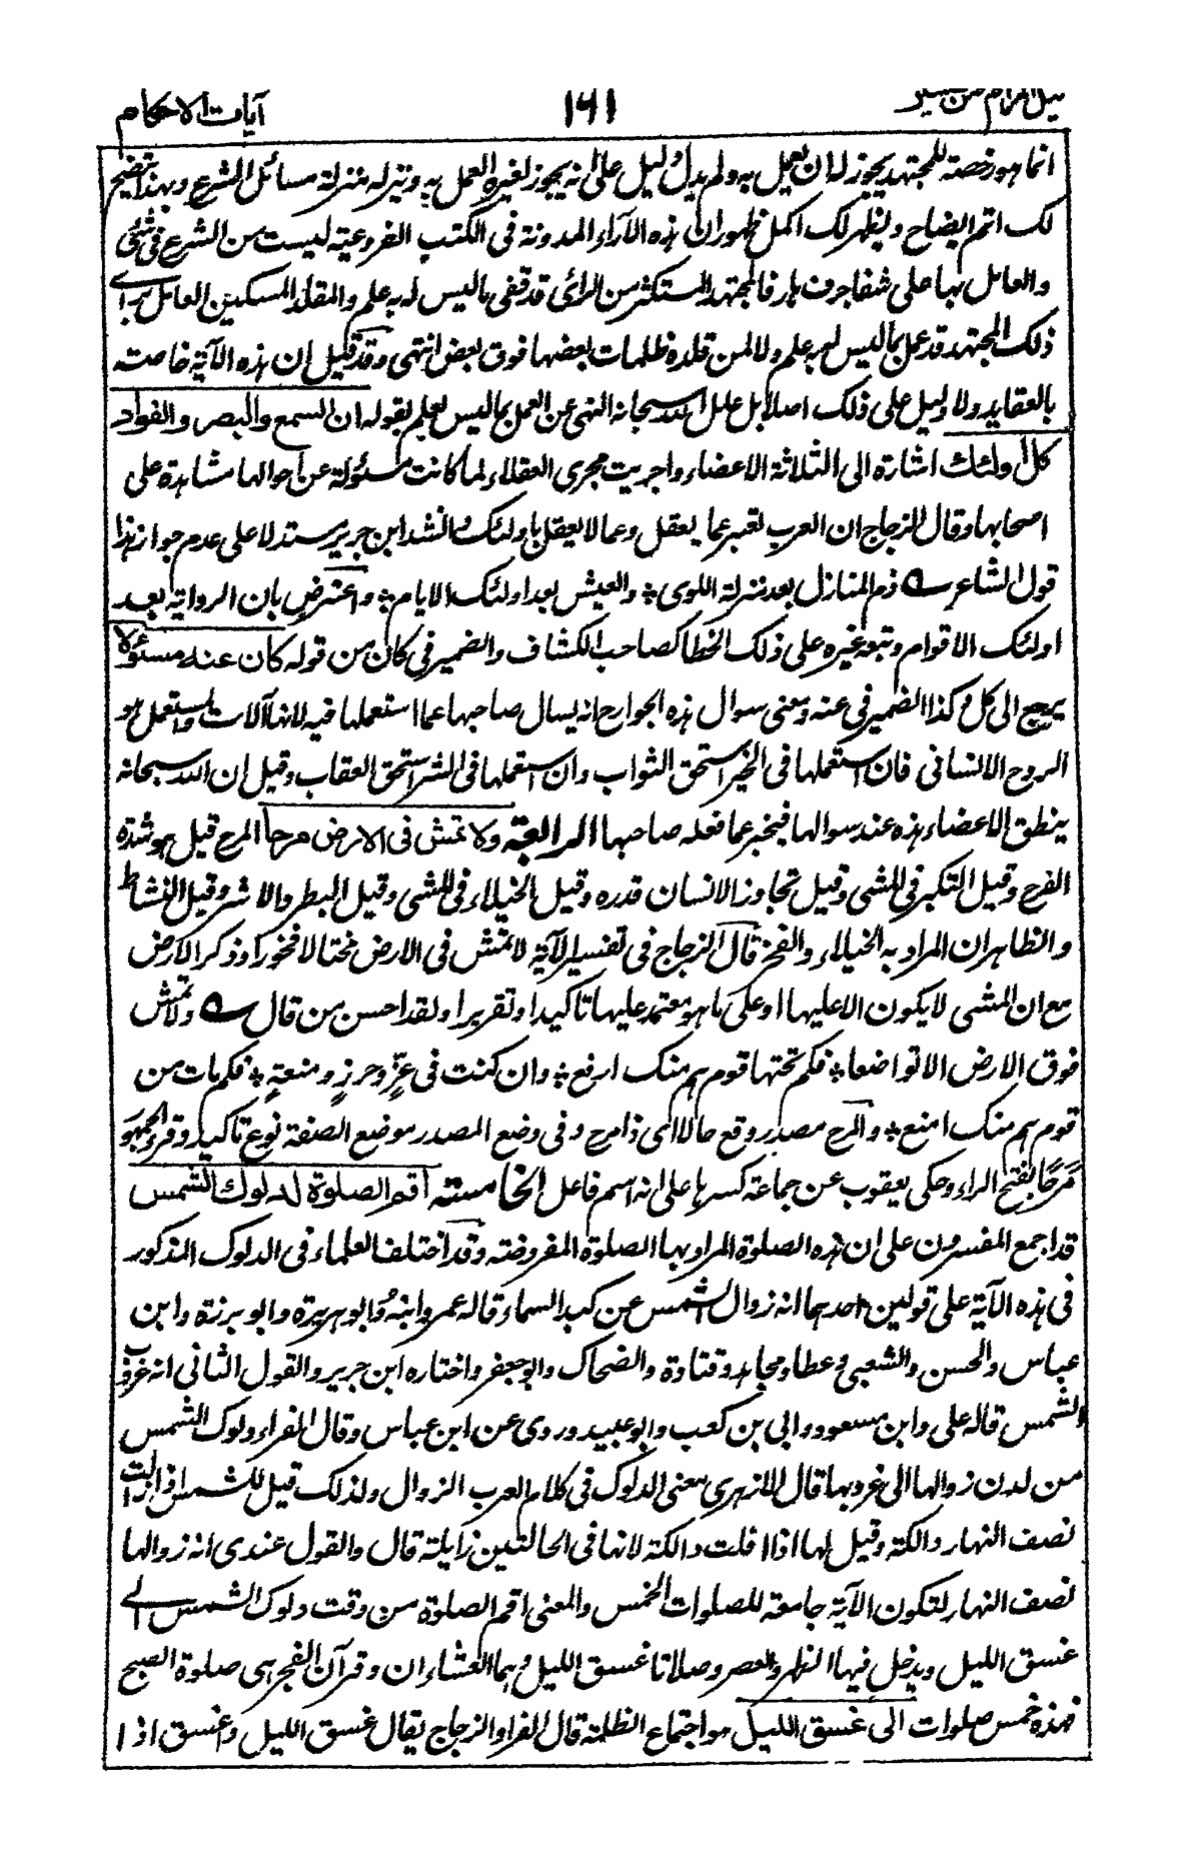 نيل المرام من تفسير ١٦١ آيات الاحكام
انما هو رخصة للمجتهد يجوز له ان يعمل به ولم يدل دليل على انه يجوز لغيره العمل به وتنزله منزلة مسائل الشرع وبهذا يتضح
لك اتم ايضاح ويظهر لك اكمل ظهور ان هذه الآراء المدونة فى الكتب الفروعية ليست من الشرع فى شئ
والعامل بها على شفا جرف هار فالمجتهد المستكثر من الرأى قد قفى ما ليس له به علم والمقلد المسكين العامل براى
ذلك المجتهد قد عمل بما ليس له به علم ولا لمن قلده ظلمات بعضها فوق بعض انتهى وقد قيل ان هذه الآية خاصة
بالعقايد ولا دليل على ذلك اصلا بل علل الله سبحانه النهى عن العمل بما ليس بعلم بقوله ان السمع والبصر والفواد
كل اولئك اشارة الى الثلاثة الاعضاء واجريت مجرى العقلاء لما كانت مسئولة عن احوالها مشاهدة على
اصحابها وقال الزجاج ان العرب تعبر عما يعقل وعما لا يعقل باولئك وانشد ابن جرير مستدلا على عدم جواز هذا
قول الشاعر ؎ ذم المنازل بعد منزلة اللوى ؛ والعيش بعد اولئك الايام ؛ واعترض بان الرواية بعد
اولئك الاقوام وتبعه غيره على ذلك الخطا كصاحب الكشاف والضمير فى كان من قوله كان عنه مسئولا
يرجع الى كل وكذا الضمير فى عنه ومعنى سوال هذه الجوارح انه يسال صاحبها عما استعملها فيه لانها آلات والمستعمل هو
الروح الانسانى فان استعملها فى الخير استحق الثواب وان استعملها فى الشر استحق العقاب وقيل ان الله سبحانه
ينطق الاعضاء هذه عند سوالها فيخبر عما فعله صاحبها الرابعة ولا تمش فى الارض مرحا المرح قيل هو شدة
الفرح وقيل التكبر فى المشى وقيل تجاوز الانسان قدره وقيل الخيلاء فى المشى وقيل البطر والاشر وقيل النشاط
والظاهر ان المراد به الخيلاء والفخر قال الزجاج فى تفسير الآية لا تمش فى الارض مختالا فخورا وذكر الارض
مع ان المشى لا يكون الا عليها او على ما هو معتمد عليها تاكيدا وتقريرا ولقد احسن من قال ؎ ولا تمش
فوق الارض الا تواضعا ؛ فكم تحتها قوم هم منك ارفع ؛ وان كنت فى عزٍّ وحرزٍ ومنعةٍ ؛ فكم مات من
قوم هم منك امنع ؛ والمرح مصدر وقع حالا اى ذا مرح وفى وضع المصدر موضع الصفة نوع تاكيد وقرئ الجمهور
مَرَحًا بفتح الراء وحكى يعقوب عن جماعة كسرها على انه اسم فاعل الخامسة اقم الصلوة لدلوك الشمس
قد اجمع المفسرون على ان هذه الصلوة المراد بها الصلوة المفروضة وقد اختلف العلماء فى الدلوك المذكور
فى هذه الآية على قولين احدهما انه زوال الشمس عن كبد السماء قاله عمر وابنه وابو هريرة وابو برزة وابن
عباس والحسن والشعبى وعطا ومجاهد وقتادة والضحاك وابو جعفر واختاره ابن جرير والقول الثانى انه غروب
الشمس قاله على وابن مسعود وابى بن كعب وابو عبيد وروى عن ابن عباس وقال الفراء دلوك الشمس
من لدن زوالها الى غروبها قال الازهرى معنى الدلوك فى كلام العرب الزوال ولذلك قيل للشمس اذا زالت
نصف النهار دالكة وقيل لها اذا افلت دالكة لانها فى الحالتين زايلة قال والقول عندى انه زوالها
نصف النهار لتكون الآية جامعة للصلوات الخمس والمعنى اقم الصلوة من وقت دلوك الشمس الى
غسق الليل ويدخل فيها الظهر والعصر وصلاتا غسق الليل وهما العشاءان وقرآن الفجر هى صلوة الصبح
فهذه خمس صلوات الى غسق الليل هو اجتماع الظلمة قال الفراء والزجاج يقال غسق الليل واغسق اذا